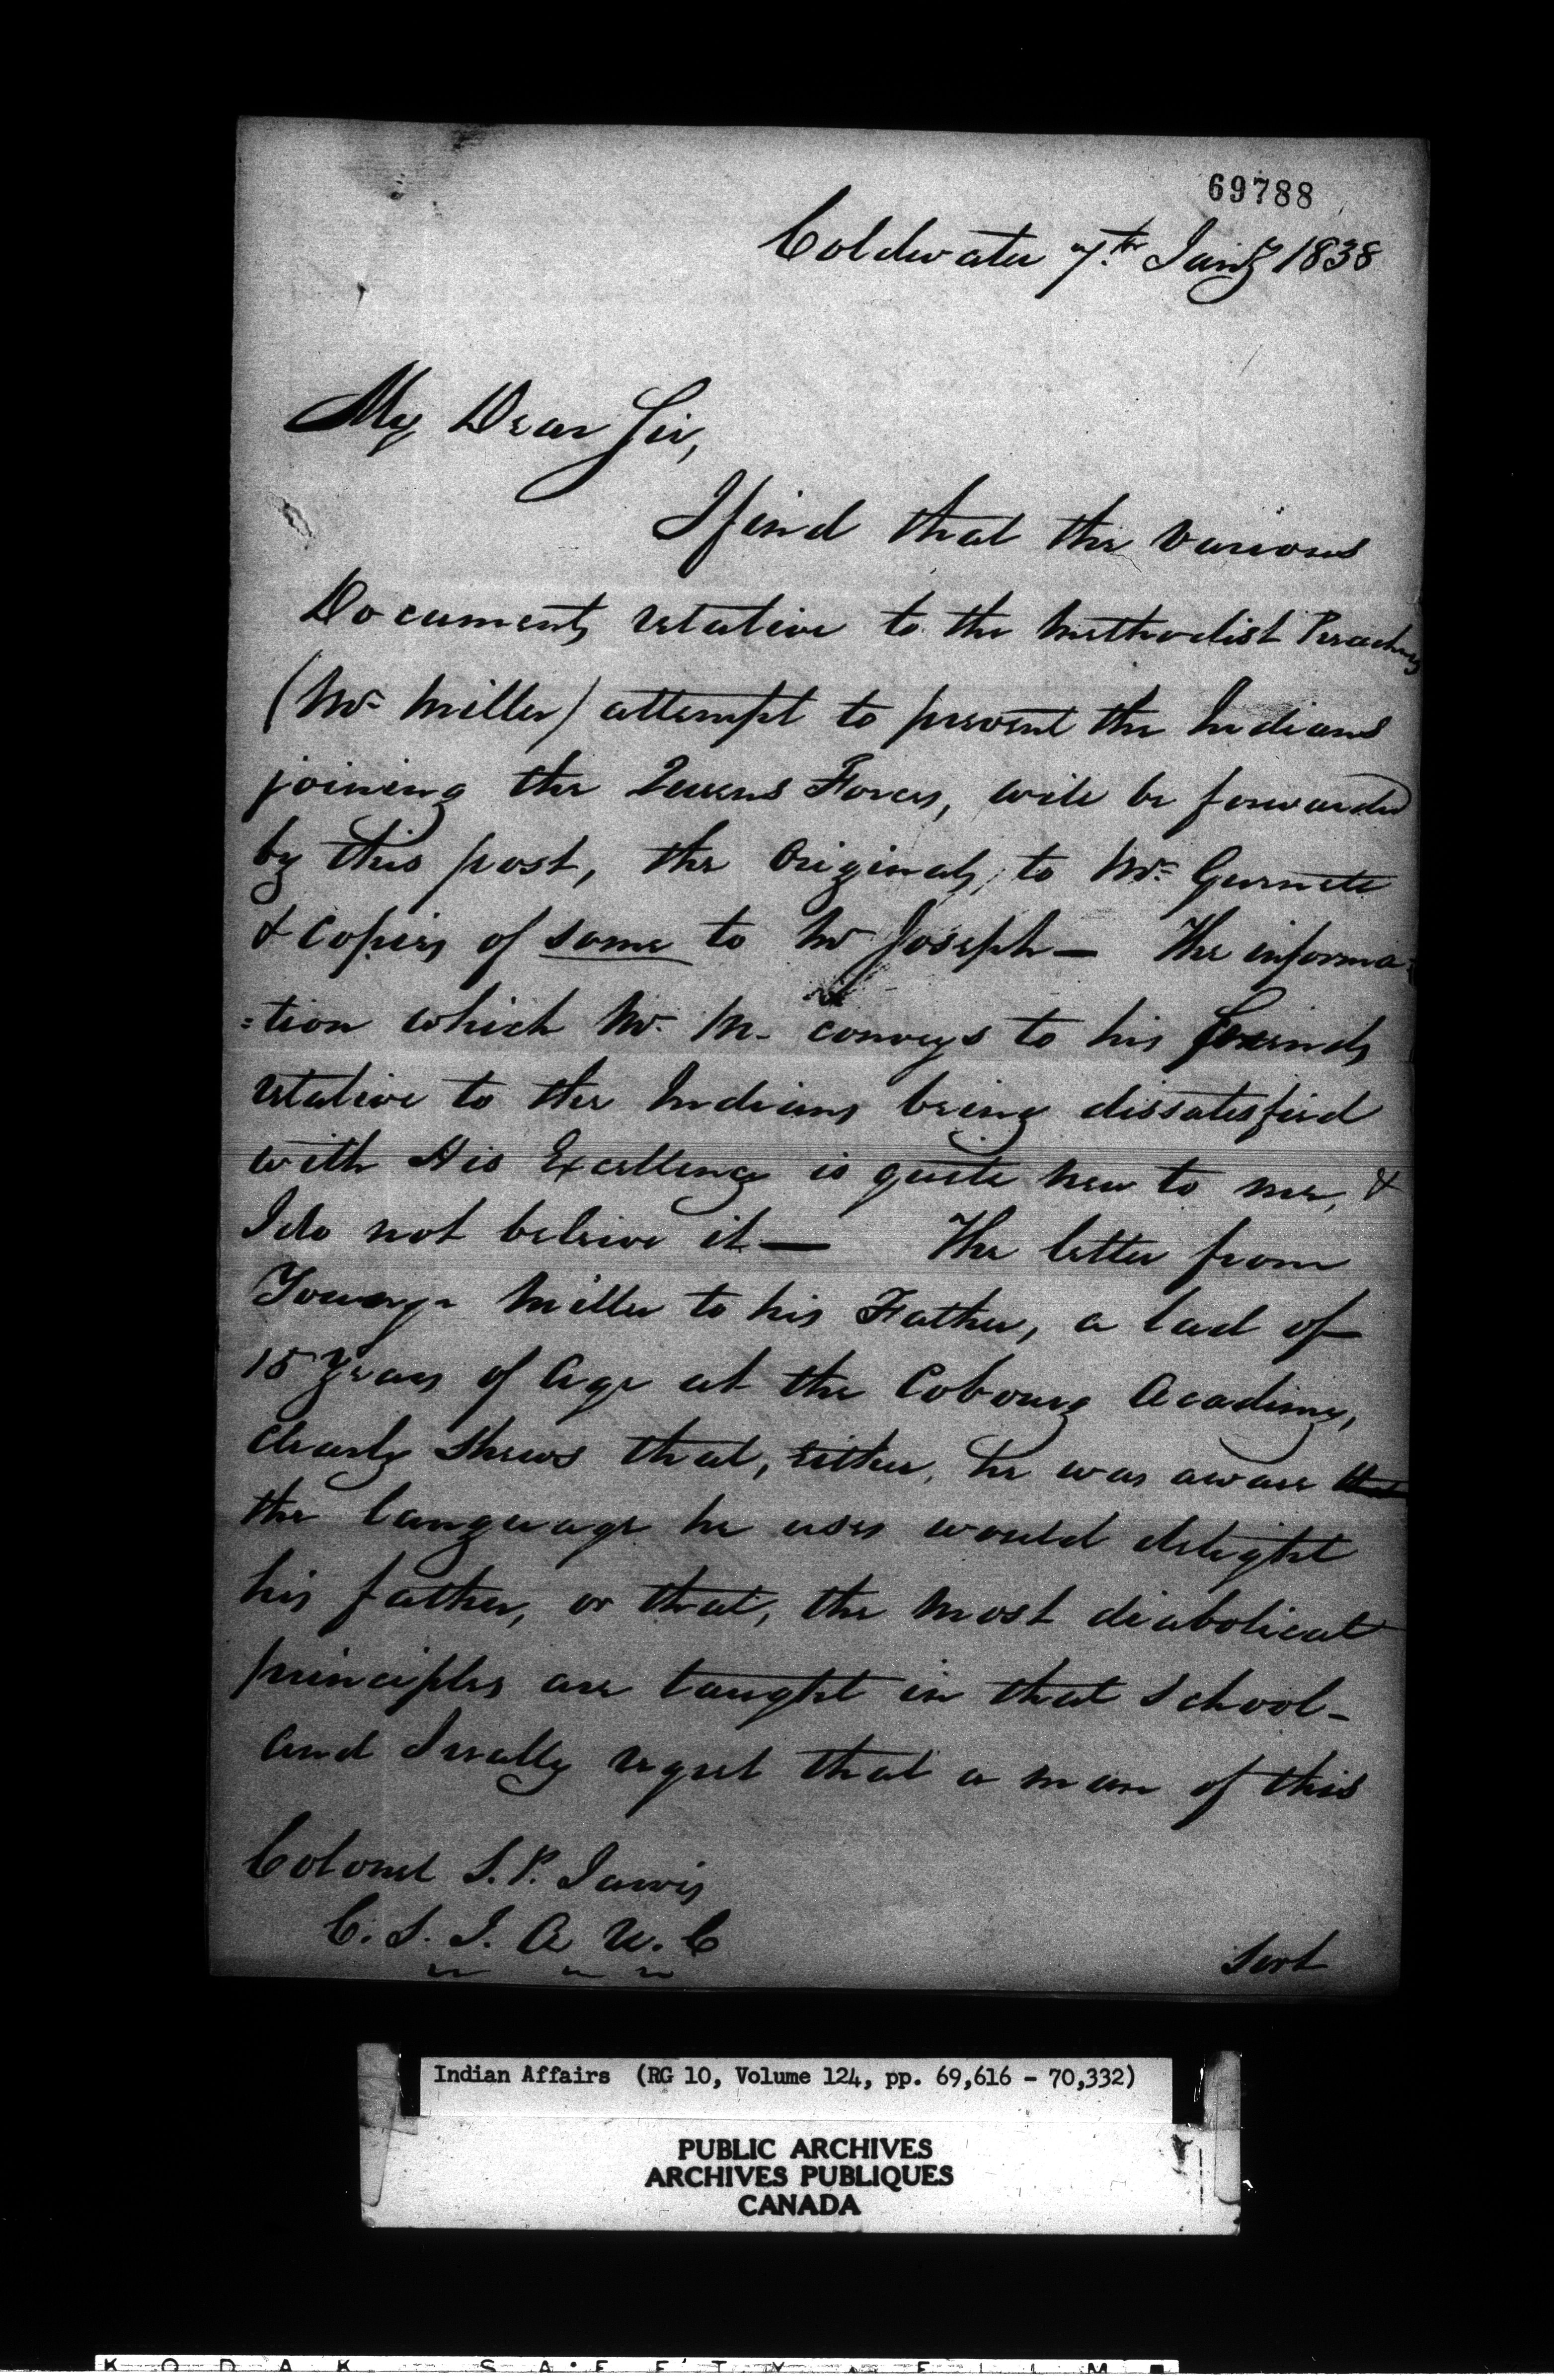 69788
Coldwater 7th Jany 1838
My Dear Sir,
I find that the various
Documents relative to the Methodist Preachers
(Mr Miller) attempt to prevent the Indians
joining the Queens Forces, will be forwarded
by this post, the Originals, to Mr Gurnett
& Copies of some to Mr Joseph — The informa
=tion which Mr M. conveys to his freinds
relative to the Indians being dissatisfied
with His Excellency is quite new to me, &
I do not beleive it — The letter from
Young Miller to his Father, a lad of
15 years of Age at the Cobourg Academy,
clearly shews that, either, he was aware that
the language he uses would delight
his father, or that, the most diabolical
principles are taught in that School –
and I really regret that a man of this
Colonel S. P. Jarvis
C. S. I. A U. C
Sort
Indian Affairs (RG 10, Volume 124, pp. 69,616 - 70,332)
PUBLIC ARCHIVES
ARCHIVES PUBLIQUES
CANADA
KODAK SAFETY FILM